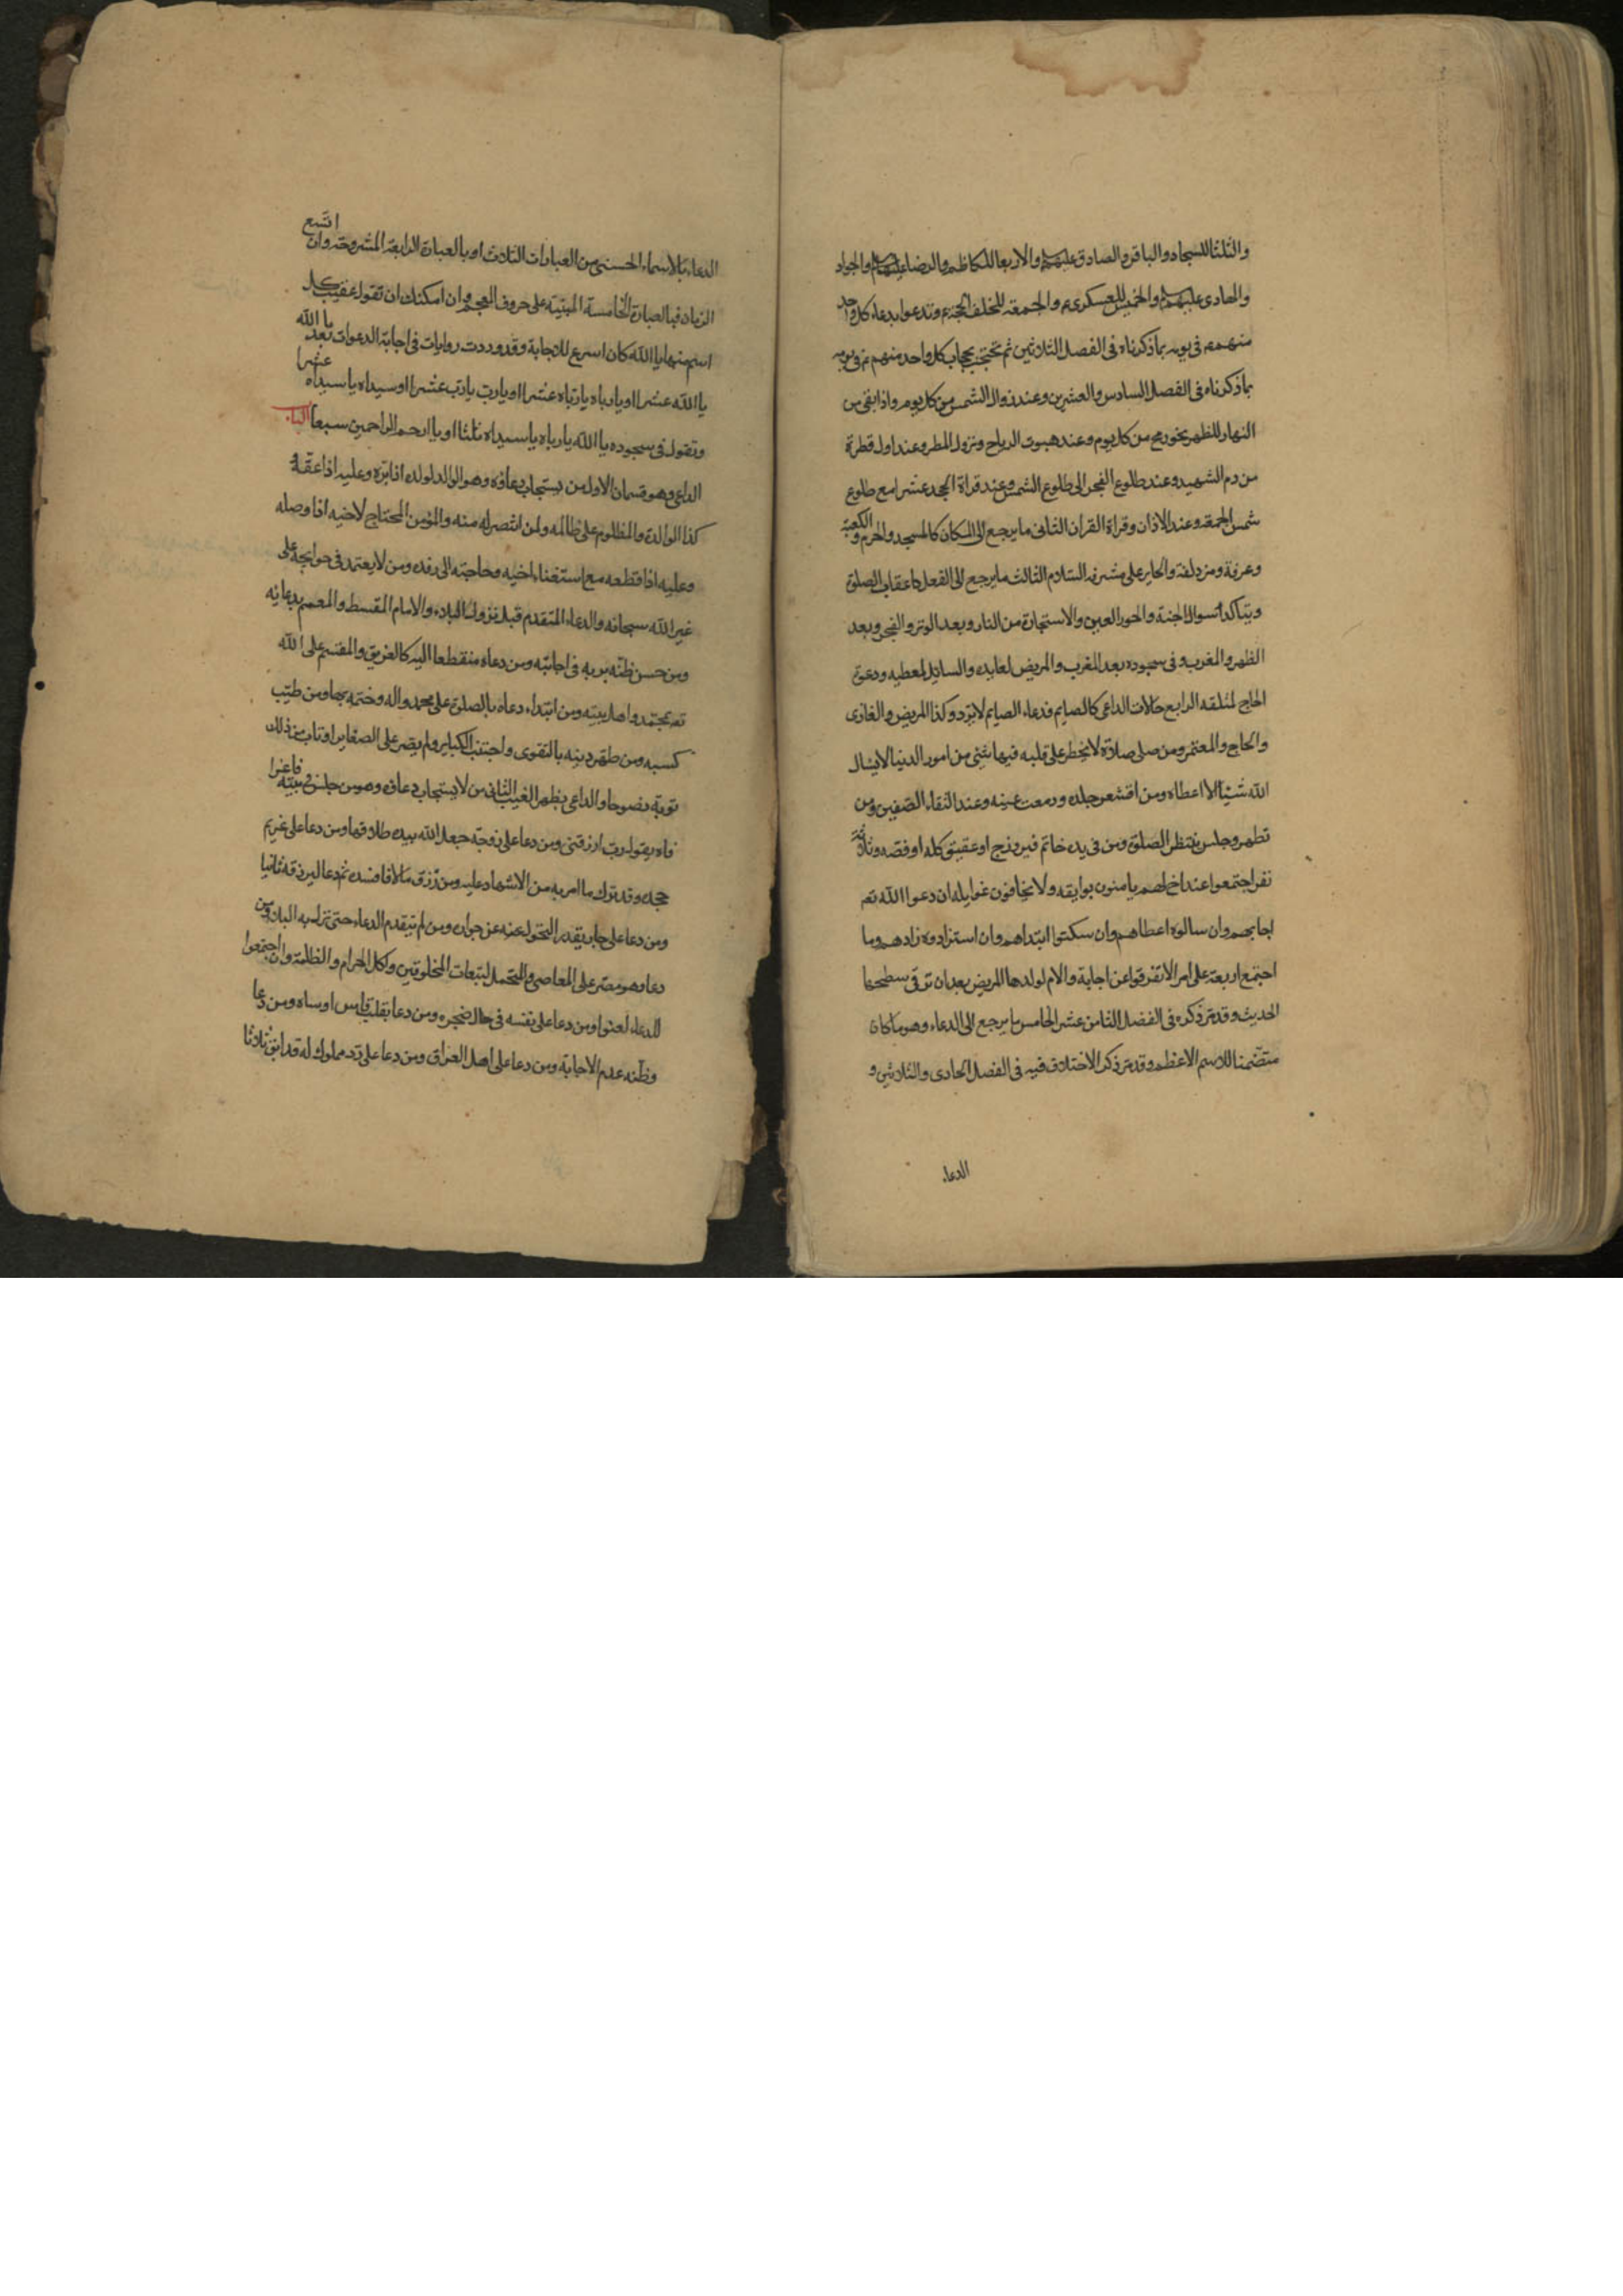 والثلثا للسجاد والباقر والصادق عليهم والاربعا للكاظم والرضا عليهما والجواد
والهادى عليهما والخميس للعسكرى ع والجمعة للخلف الحجة ع وتدعوا بدعاء كل واحد
منهم ع فى يومه بما ذكرناه فى الفصل الثلاثين ثم تحتجب بحجاب كل واحد منهم ع فى يومه
بما ذكرناه فى الفصل السادس والعشرين وعند زوال الشمس من كل يوم واذا بقى من
النهار للظهر نحو رمح من كل يوم وعند هبوب الرياح ونزول المطر وعند اول قطرة
من دم الشهيد وعند طلوع الفجر الى طلوع الشمس وعند قراة الجحد عشرا مع طلوع
شمس الجمعة وعند الاذان وقراة القران الثانى ما يرجع الى المكان كالمسجد والحرم والكعبة
وعرفة ومزدلفة والحاير على مشرفه السلام الثالث ما يرجع الى الفعل كاعقاب الصلوة
ويتأكد سوال الجنة والحور العين والاستجارة من النار وبعد الوتر والفجر وبعد
الظهر والمغرب وفى سجوده بعد المغرب والمريض لعايده والسايل لمعطيه ودعوة
الحاج لمتلقه الرابع حالات الداعى كالصايم فدعاء الصايم لا يرد وكذا المريض والغازى
والحاج والمعتمر ومن صلى صلاة لا يخطر على قلبه فيها شئ من امور الدنيا لا يسال
الله شيئا الا اعطاه ومن اقشعر جلده ودمعت عينه وعند التقاء الصفين ومن
تطهر وجلس ينتظر الصلوة ومن فى يده خاتم فيروزج او عقيق كله او فصه وثلاثة
نفر اجتمعوا عند اخ لهم يامنون بوايقه ولا يخافون غوايله ان دعوا الله تع
اجابهم وان سالوه اعطاهم وان سكتوا ابتداهم وان استزادوه زادهم وما
اجتمع اربعة على امر الا تفرقوا عن اجابة والام لولدها المريض بعد ان ترقى سطحها
الحديث وقد مر ذكره فى الفصل الثامن عشر الخامس ما يرجع الى الدعاء وهو ما كان
متضمنا للاسم الاعظم وقد مر ذكر الاختلاف فيه فى الفصل الحادى والثلاثين و
الدعاء
الدعاء بالاسماء الحسنى من العبارات الثلاث او بالعبارة الرابعة المشروحة وان اتسع
الزمان فبالعبارة الخامسة المبنية على حروف المعجم وان امكنك ان تقول عقيب كل
اسم منها يا الله كان اسرع للاجابة وقد وردت روايات فى اجابة الدعوات بعد يا الله
يا الله عشرا او يا رباه يا رباه عشرا او يا رب يا رب عشرا او سيداه يا سيداه عشرا
وتقول فى سجوده يا الله يا رباه يا سيداه ثلثا او يا ارحم الراحمين سبعا
الداعى وهو قسمان الاول من يستجاب دعاؤه وهو الوالد لولده اذا بره وعليه اذا عقه و
كذا الوالدة والمظلوم على ظالمه ولمن انتصر له منه والمؤمن المحتاج لاخيه اذا وصله
وعليه اذا قطعه مع استغناء اخيه وحاجته الى رفده ومن لا يعتمد فى حوايجه على
غير الله سبحانه والدعاء المتقدم قبل نزول البلاء والامام المقسط والمعمم بدعائه
ومن حسن ظنه بربه فى اجابته ومن دعاه منقطعا اليه كالغريق والمقسم على الله
تع بمحمد واهل بيته ومن ابتداء دعاه بالصلوة على محمد واله وختمه بها ومن طيب
كسبه ومن طهر دينه بالتقوى واجتنب الكباير ولم يصر على الصغاير او تاب من ذلك
توبة نصوحا والداعى بظهر الغيب الثانى من لا يستجاب دعاؤه وهو من جلس فى بيته فاغرا
فاه يقول رب ارزقنى ومن دعا على زوجة جعل الله بيده طلاقها ومن دعا على غريم
جحده وقد ترك ما امر به من الاشهاد عليه ومن رزق مالا فافسده ثم دعا ليرزقه ثانيا
ومن دعا على جار يقدر التحول عنه عن جواره ومن لم يتقدم الدعاء حتى نزل به البلاء ومن
دعا وهو مصر على المعاصى والمتحمل لتبعات المخلوقين واكل الحرام والظلمة وان اجتمعوا
للدعاء لعنوا ومن دعا على نفسه فى حال ضجره ومن دعا بقلب قاس او ساه ومن دعا
وظنه عدم الاجابة ومن دعا على اهل العراق ومن دعا على رد مملوك له قد ابق ثلاثا